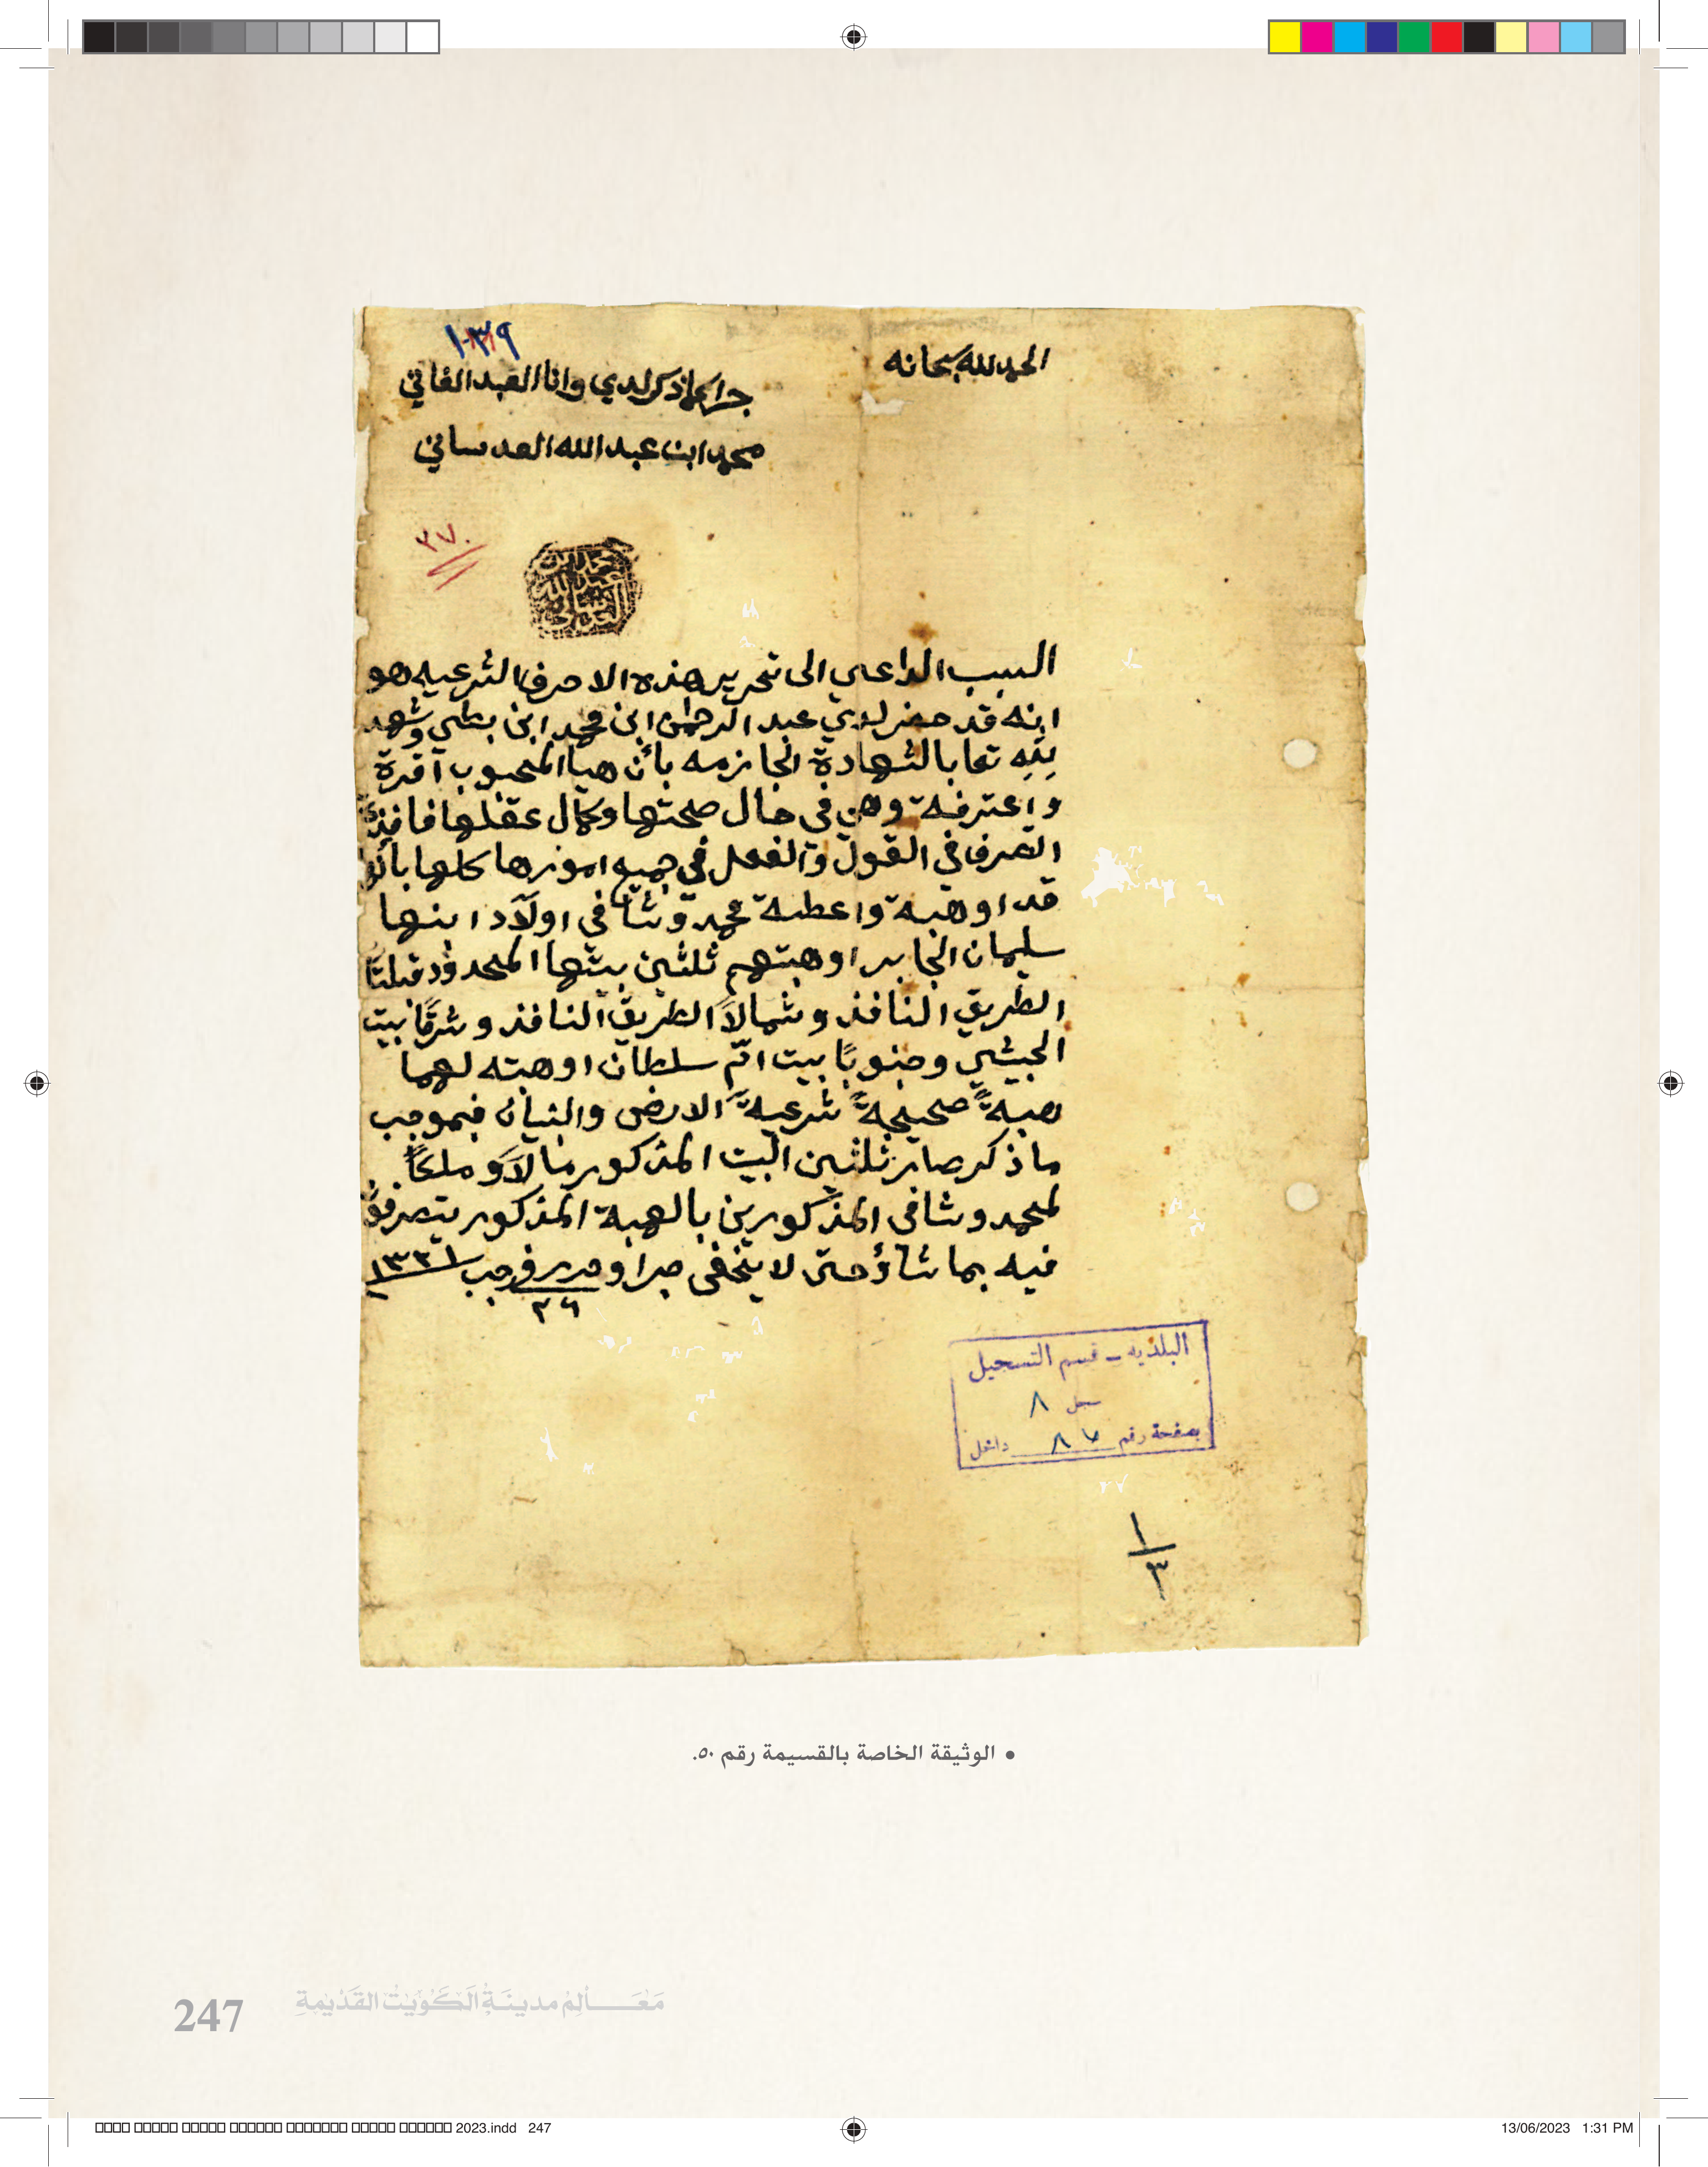 الحمد لله سبحانه
١٠٣٩
جرا كما ذكر لدي وانا العبد الفاني
محمد ابن عبدالله العدساني
٣٧٠
محمد ابن
عبدالله
العدساني
السبب الداعي الى تحرير هذه الاحرف الشرعيه هو
انه قد حضر لدي عبد الرحمن ابن محمد ابن بطي وشهد
لله تعا بالشهادة الجازمه بأن هيا المحبوب اقرة
واعترفة وهي في حال صحتها وكمال عقلها نافذة
التصرف في القول والفعل في جميع امورها كلها بأنها
قد اوهبة واعطية محمد وشافي اولاد ابنها
سليمان الجابر اوهبتهم ثلثين بيتها المحدود قبلتاً
الطريق النافذ وشمالاً الطريق النافذ وشرقاً بيت
الحبيشي وجنوباً بيت ام سلطان اوهبته لهما
هبةً صحيحةً شرعيةً الارض والبنيان فبموجب
ما ذكر صار ثلثين البيت المذكور مالاً وملكاً
لمحمد وشافي المذكورين بالهبة المذكور يتصرفون
فيه بما شاؤ حتى لا يخفى جرا وحرر في رجب ١٣٣١
٢٦
البلديه – قسم التسجيل
سجل ٨
بصفحة رقم ٨٧ داخل
١
٣
• الوثيقة الخاصة بالقسيمة رقم ٥٠.
مَعَالِمُ مدينَةِ الكُوَيْتْ القَدْيمةِ
247
2023.indd 247
13/06/2023 1:31 PM